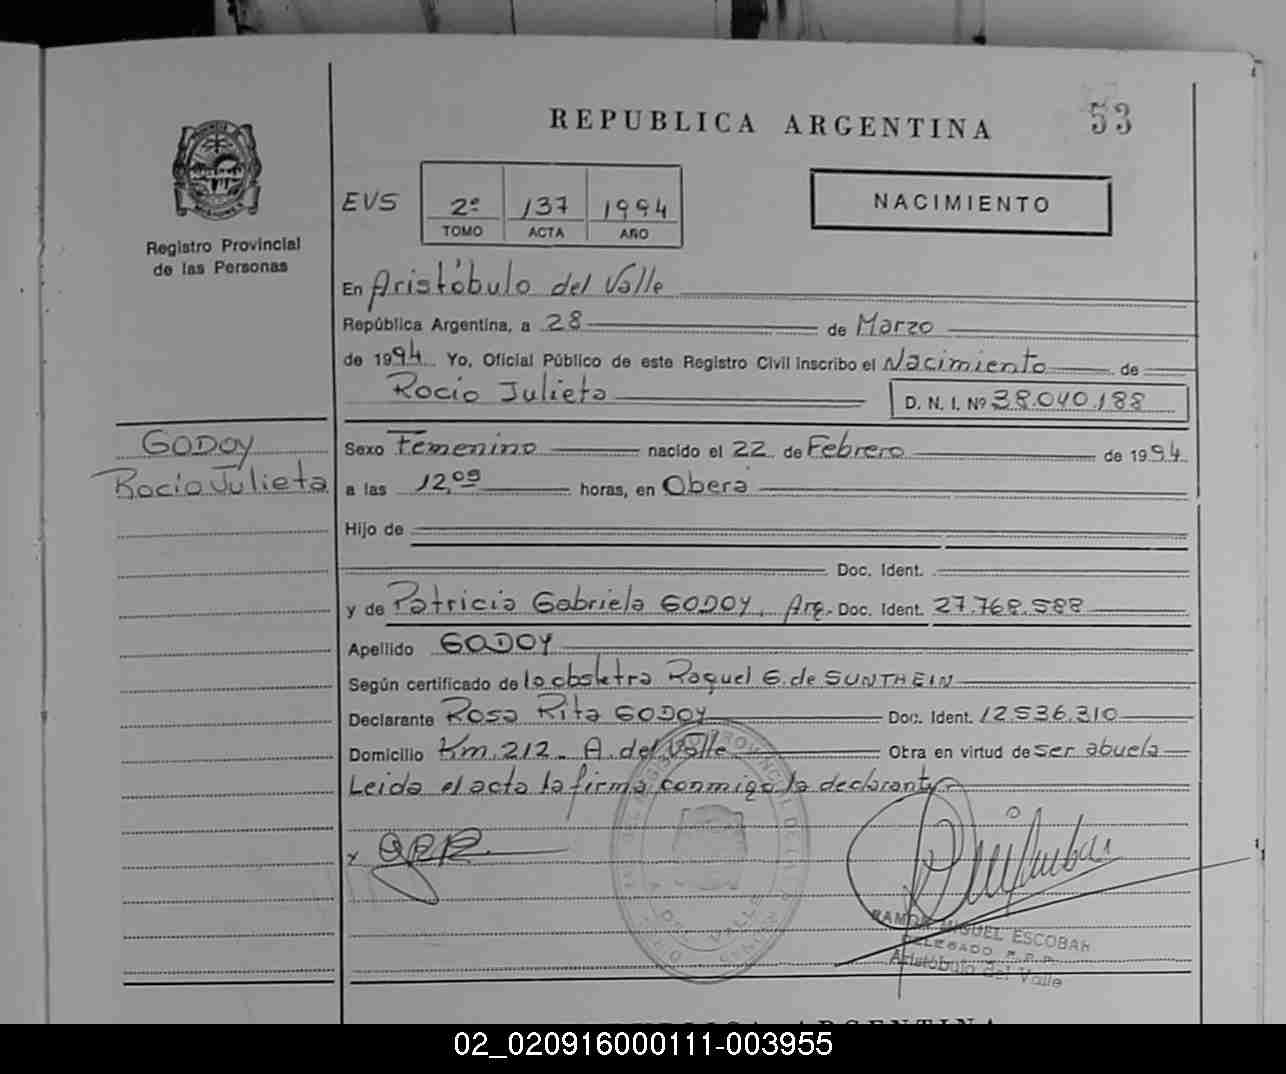 53
REPUBLICA ARGENTINA
NACIMIENTO
EVS
2º 137 1994
TOMO ACTA AÑO
Registro Provincial
de las Personas
En Aristóbulo del Valle
República Argentina, a 28 de Marzo
de 1994. Yo, Oficial Público de este Registro Civil inscribo el Nacimiento de
Rocio Julieta D. N. I. Nº 38.040.188
GODOY
Rocio Julieta
Sexo Femenino nacido el 22 de Febrero de 1994
a las 12,09 horas, en Oberá
Hijo de
Doc. Ident.
y de Patricia Gabriela GODOY, Arg. Doc. Ident. 27.768.588
Apellido GODOY
Según certificado de la obstetra Raquel G. de SUNTHEIN
Declarante Rosa Rita GODOY Doc. Ident. 12.536.310
Domicilio Km. 212 - A. del Valle Obra en virtud de ser abuela
Leida el acta la firma conmigo la declarante.-
x
RAMON MIGUEL ESCOBAR
DELEGADO R.P.P.
Aristóbulo del Valle
REPUBLICA ARGENTINA
02_020916000111-003955